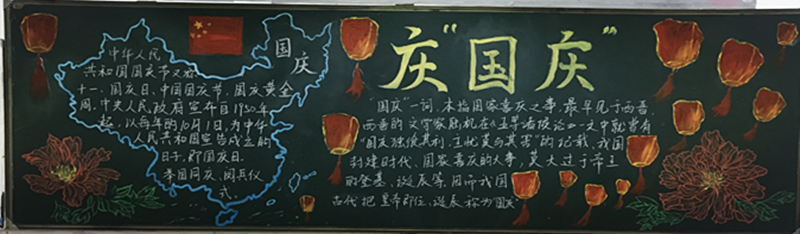 国庆
中华人民
共和国国庆节又称
十一、国庆日、中国国庆节、国庆黄金
周。中央人民政府宣布自1950年
起，以每年的10月1日，为中华
人民共和国宣告成立的
日子，即国庆日。
举国同庆、阅兵仪
式。
庆“国庆”
“国庆”一词，本指国家喜庆之事，最早见于西晋。
西晋的文学家陆机在《五等诸侯论》一文中就曾有
“国庆独飨其利，主忧莫与其害”的记载，我国
封建时代、国家喜庆的大事，莫大过于帝王
的登基、诞辰等。因而我国
古代把皇帝即位、诞辰称为“国庆”